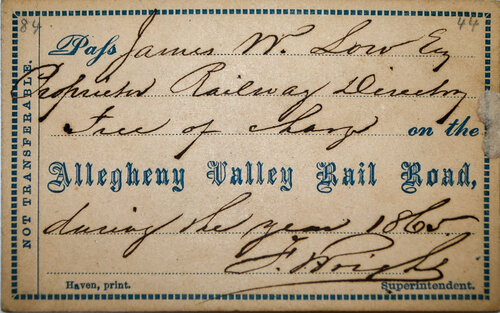 84
44
NOT TRANSFERABLE.
Pass James W. Low Esq
Proprietor Railway Directory
Free of charge on the
Allegheny Valley Rail Road,
during the year 1865
F. Wright
Haven, print.
Superintendent.